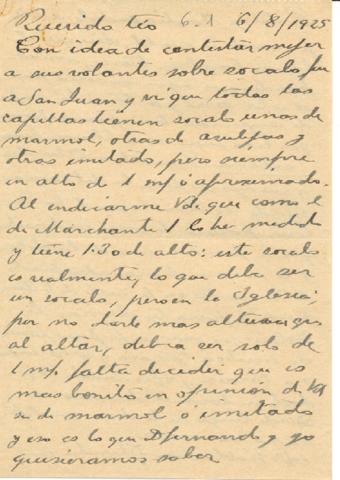 Querido tío 6.1 6/8/1925
Con idea de contestar mejor
a sus volantes sobre zocalo fui
a San Juan y vi que todas las
capillas tienen zocalo unas de
marmol, otras de azulejos y
otras imitado, pero siempre
en alto de 1 m/ ó aproximado.
Al indicarme Vd. que como el
de Marchante lo he medido
y tiene 1.30 de alto: este zocalo
es realmente, lo que debe ser
un zocalo, pero en la Iglesia,
por no darle mas altura que
al altar, debera ser solo de
1 m/. falta decidir que es
mas bonito en opinión de Vd
si de marmol o imitado
y eso es lo que D fernando y yo
quisiéramos saber